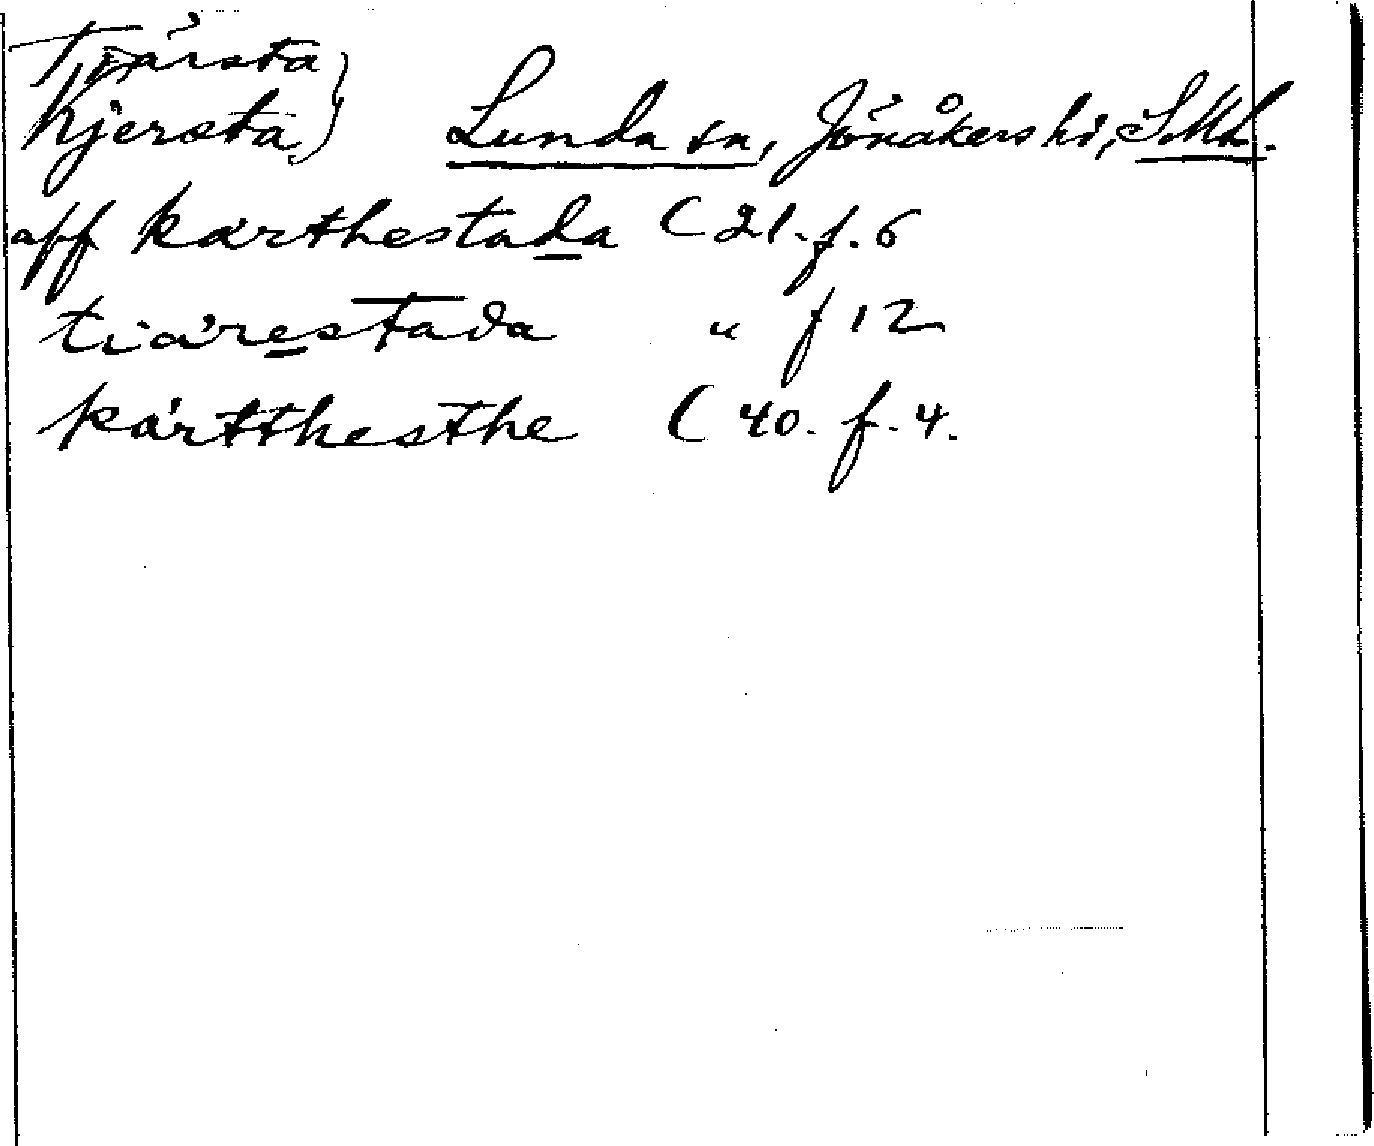 Tjärsta
Kjersta) Lunda sn, Jönåkers hd, SML.
aff karthestada (21. f. 6
tiärestada " f 12
kärtthesthe (40. f. 4.